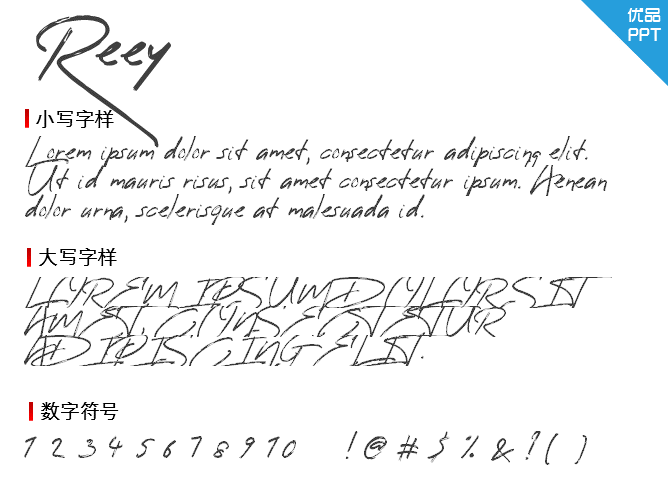 优品
PPT
Reey
小写字样
Lorem ipsum dolor sit amet, consectetur adipiscing elit.
Ut id mauris risus, sit amet consectetur ipsum. Aenean
dolor urna, scelerisque at malesuada id.
大写字样
LOREM IPSUM DOLOR SIT
AMET, CONSECTETUR
ADIPISCING ELIT.
数字符号
1 2 3 4 5 6 7 8 9 10 !@#$%&?()